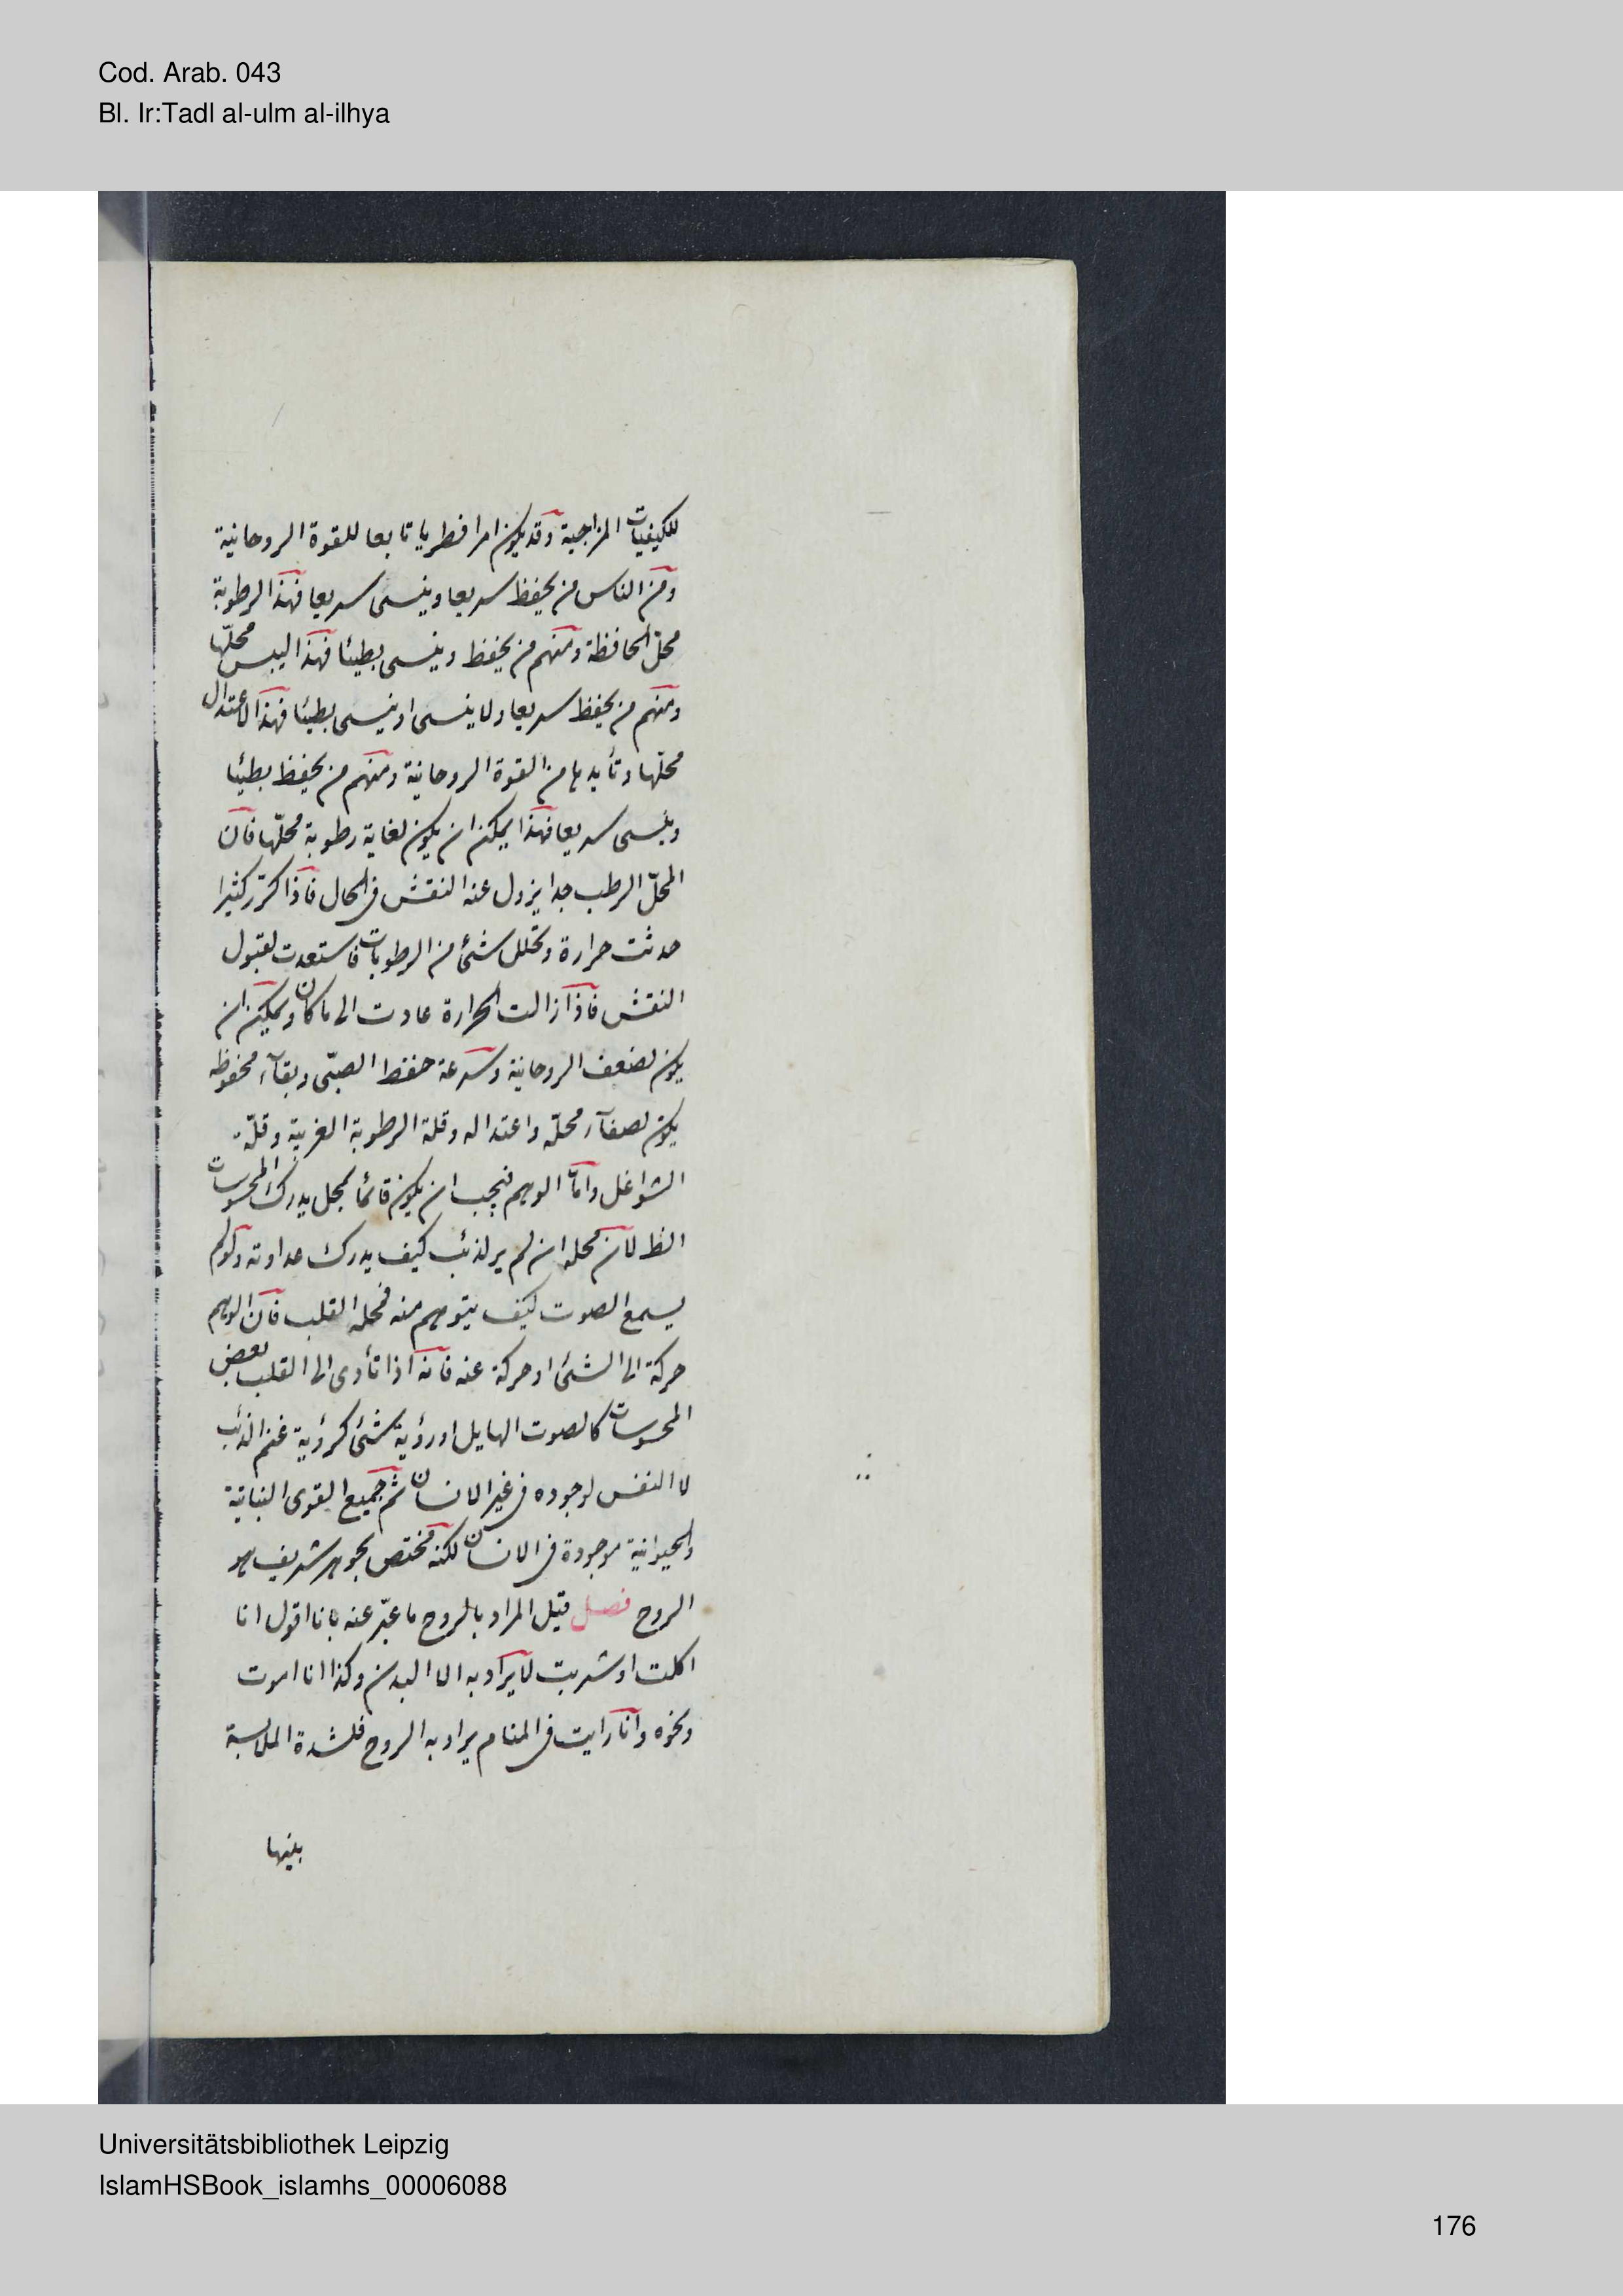 Cod. Arab. 043
Bl. Ir:Tadl al-ulm al-ilhya
للكيفيات المزاجية وقد يكون امرا فطريا تابعا للقوة الروحانية
ومن الناس من يحفظ سريعا وينسى سريعا فهذا الرطوبة
محلّ الحافظة ومنهم من يحفظ وينسى بطيئا فهذا اليبس محلّها
ومنهم من يحفظ سريعا ولا ينسى او ينسى بطيئا فهذا لاعتدال
محلّها وتأييدها من القوة الروحانية ومنهم من يحفظ بطيئا
وينسى سريعا فهذا يمكن ان يكون لغاية رطوبة محلّها فان
المحلّ الرطب جدا يزول عنه النقش فى الحال فاذا كرّر كثيرا
حدثت حرارة وتحلل شئ من الرطوبات فاستعدت لقبول
النقش فاذا زالت الحرارة عادت الى ما كان ويمكن ان
يكون لضعف الروحانية وسرعة حفظ الصبّى وبقآء محفوظه
يكون لصفآء محلّه واعتداله وقلة الرطوبة الغريبة وقلّة
الشواغل وامّا الوهم فيجب ان يكون قائما بمحل يدرك المحسوسات
الظ لان محله ان لم ير لذئب كيف يدرك عداوته ولو لم
يسمع الصوت كيف يتوهم منه فمحله القلب فان الوهم
حركة الى الشئ او حركة عنه فانه اذا تأدى الى القلب بعض
المحسوسات كالصوت الهايل او رؤية شئ كرؤية غنم الذئب
لا النفس لوجوده فى غير الانسان ثم جميع القوى النباتية
والحيوانية موجودة فى الانسان لكنه مختص بجوهر شريف هو
الروح فصل قيل المراد بالروح ما عبّر عنه بانا اقول انا
اكلت او شربت لا يراد به الا البدن وكذا انا اموت
ونحوه وانا رايت فى المنام يراد به الروح فلشدة الملابسة
بينها
Universitätsbibliothek Leipzig
IslamHSBook_islamhs_00006088
176